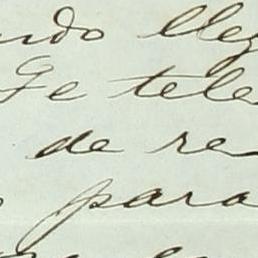 ndo lleg
Ge tele
de re
para